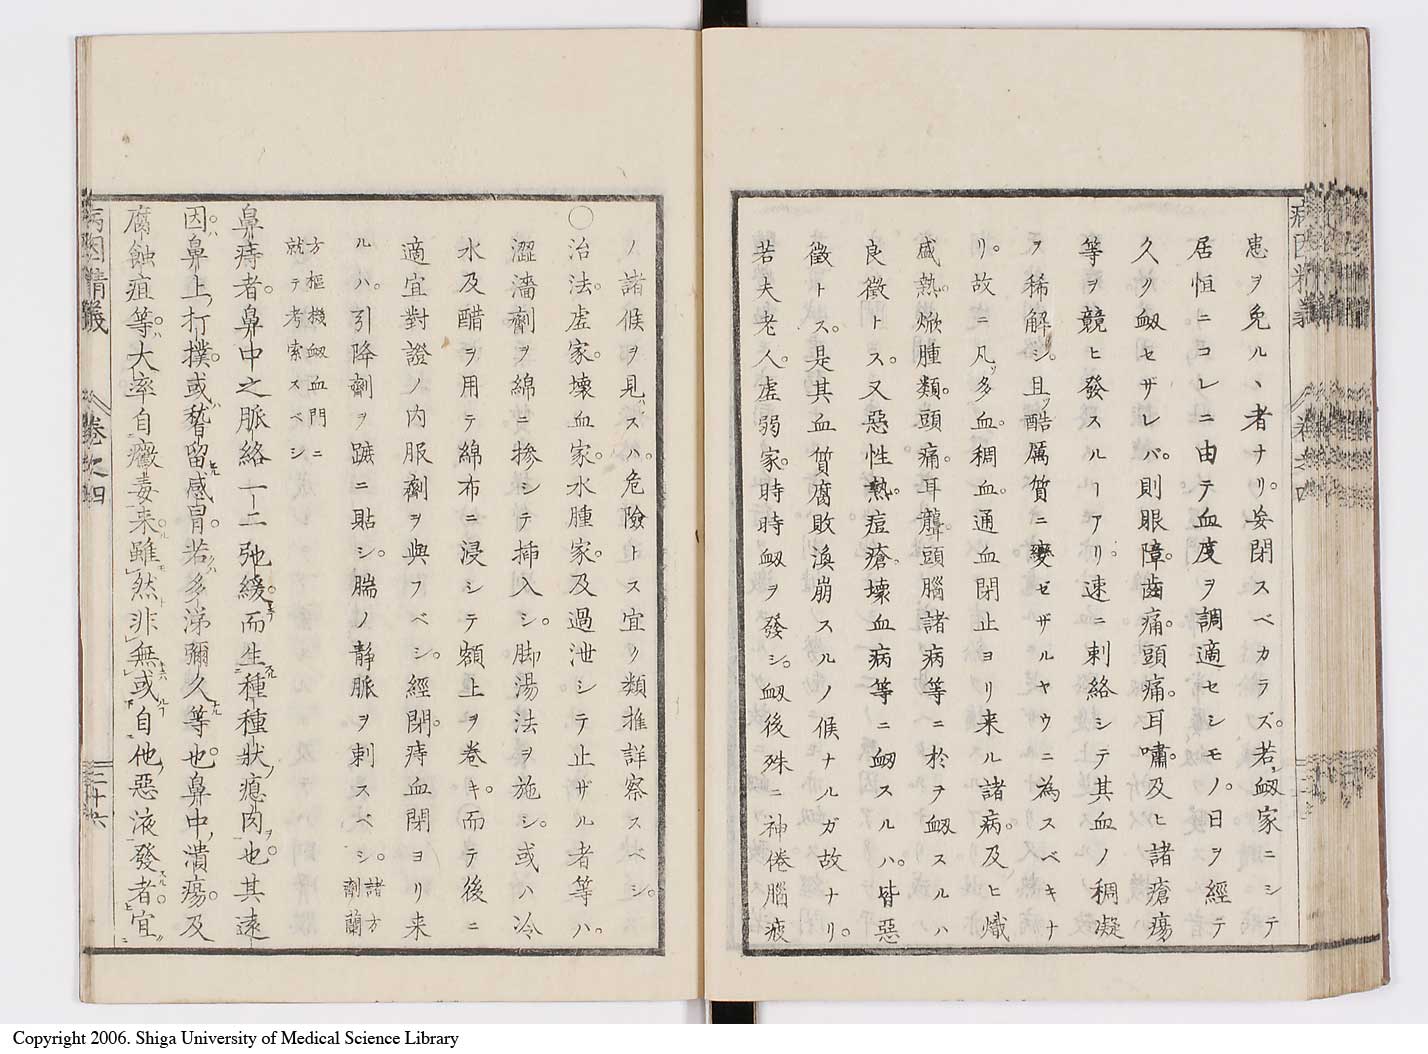 患ヲ免ルヽ者ナリ。妄閉スベカラズ。若衂家ニシテ
居恒ニコレニ由テ血度ヲ調適セシモノ。日ヲ經テ
久ノ衂セザレバ。則眼障。齒痛。頭痛。耳嘯。及ヒ諸瘡瘍
等ヲ競ヒ發スルヿアリ。速ニ刺絡シテ其血ノ稠凝
ヲ稀解シ。且ツ酷厲質ニ變ゼザルヤウニ為スベキナ
リ。故ニ凡ソ多血。稠血。通血閉止ヨリ来ル諸病。及ヒ熾
盛熱。焮腫類。頭痛。耳聾。頭腦諸病等ニ於ヲ衂スルハ
良徵トス。又惡性熱。痘瘡。壞血病等ニ衂スルハ。皆惡
徵トス。是其血質腐敗渙崩スルノ候ナルガ故ナリ。
若夫老人。虚弱家。時時衂ヲ發シ。衂後殊ニ神倦腦疲
ノ諸候ヲ見ハスハ。危險トス宜ク類推詳察スベシ。
○治法。虚家。壞血家。水腫家。及過泄シテ止ザル者等ハ。
澀濇劑ヲ綿ニ摻シテ挿入シ。脚湯法ヲ施シ。或ハ冷
水及醋ヲ用テ綿布ニ浸シテ額上ヲ卷キ。而テ後ニ
適宜對證ノ内服劑ヲ與フベシ。經閉。痔血閉ヨリ来
ルハ。引降劑ヲ蹠ニ貼シ。腨ノ静脈ヲ刺スベシ。諸方劑蘭
方樞機衂血門ニ就テ考索スベシ
鼻痔者。鼻中之脈絡一二弛緩。而生種種狀瘜肉也。其遠
因。鼻上打撲。或稽留感冒。若多涕彌久等也。鼻中潰瘍。及
腐蝕疽等。大率自黴毒来。雖然非無或自他惡液發者。宜
病因精義 卷之四 二十六